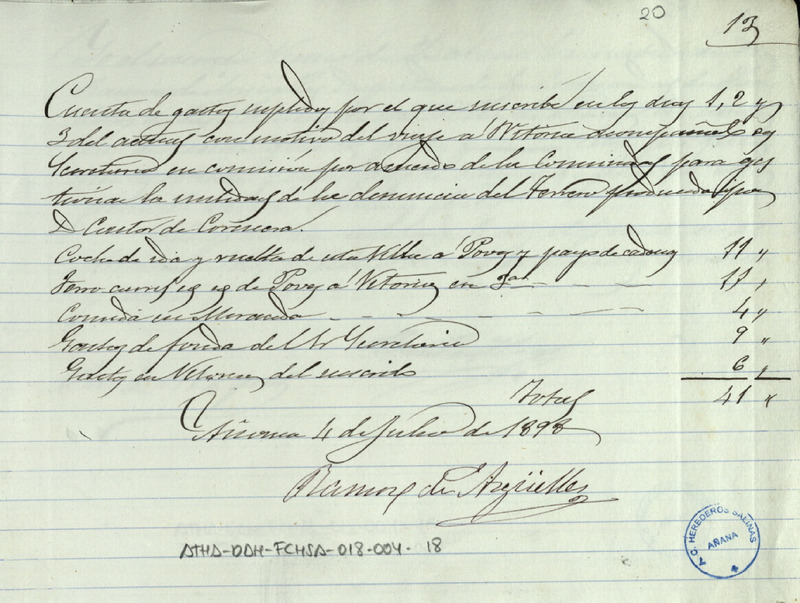 20
13
Cuenta de gastos suplidos por el que suscribe en los dias 1, 2 y
3 del actual con motivo del viaje a Vitoria acompañado
Secretario en comisión por acuerdo de la Comunidad para ges
tionar la nulidad de la denuncia del Terreno producida por
D Castor de
Coche de ida y vuelta de esta Villa a Poves y pago de 11 "
Ferro carril de Poves a Vitoria en 3a 11 "
Comida en Miranda 4 "
Gastos de fonda del Sr Secretario 9 "
Gastos en Vitoria del suscrito 6 "
Total 41 "
Añana 4 de Julio de 1898
Ramon de Argüelles
ATHA-DAH-FCHSA-018-004-18
A. C. HEREDEROS SALINAS
AÑANA